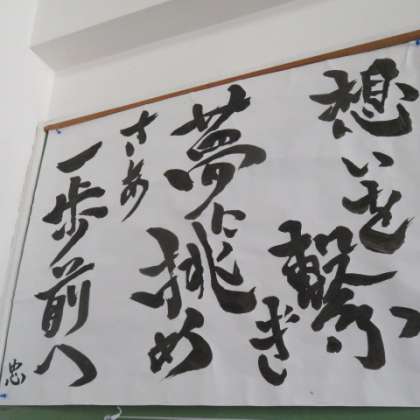 想いを
繋ぎ
夢に挑め
さあ
一歩前へ
忠